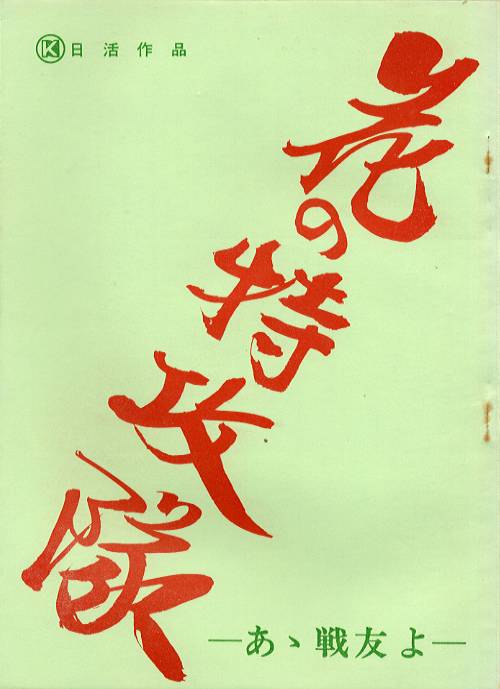 Ⓚ日活作品
花の特攻隊
―あゝ戦友よ―